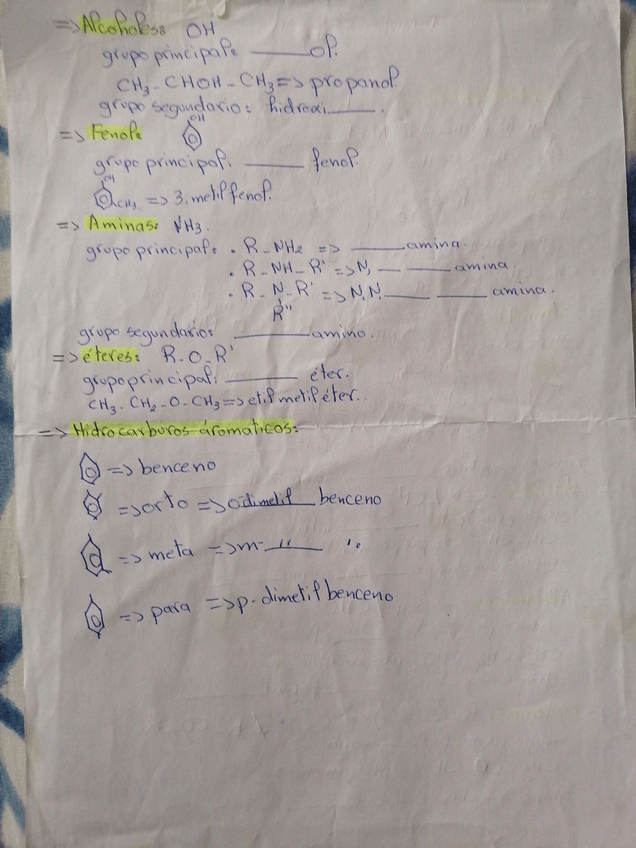 => Alcoholes: OH
grupo principal: ______ol.
CH3 - CHOH - CH3 => propanol
grupo segundario: hidroxi______.
=> Fenol: OH
grupo principal: ______ fenol.
OH CH3 => 3, metil fenol.
=> Aminas: NH3.
grupo principal: • R - NH2 => ______amina.
• R - NH - R' => N, __ ______amina
• R - N - R' => N,N, ______ ______ amina.
R''
grupo segundario: ______amino.
=> éteres: R - O - R'
grupo principal: ______ éter.
CH3 - CH2 - O - CH3 => etil metil éter.
=> Hidrocarburos áromaticos:
=> benceno
=> orto => o dimetil benceno
=> meta => m- " "
=> para => p-dimetil benceno